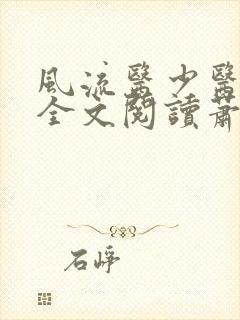 風流醫少醫
全文閱讀蕭
石崢